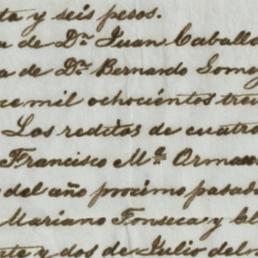 ta y seis pesos.
a de Dn Juan Caball
a de Dn Bernardo Gome
ce mil ochocientos trei
Los reditos de cuatro
Francisco Ma Orma
del año procimo pasad
Mariano Fonseca y El
nte y dos de Julio del